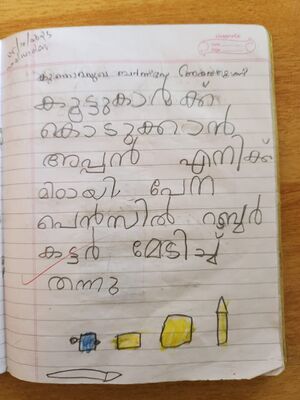 കൂട്ടുകാർ ക്ക്
കൊടുക്കാൻ
അപ്പൻ എനിക്ക്
മിഠായി, പേന
പെൻസിൽ റബ്ബർ
കട്ടർ മേടിച്ച്
തന്നു